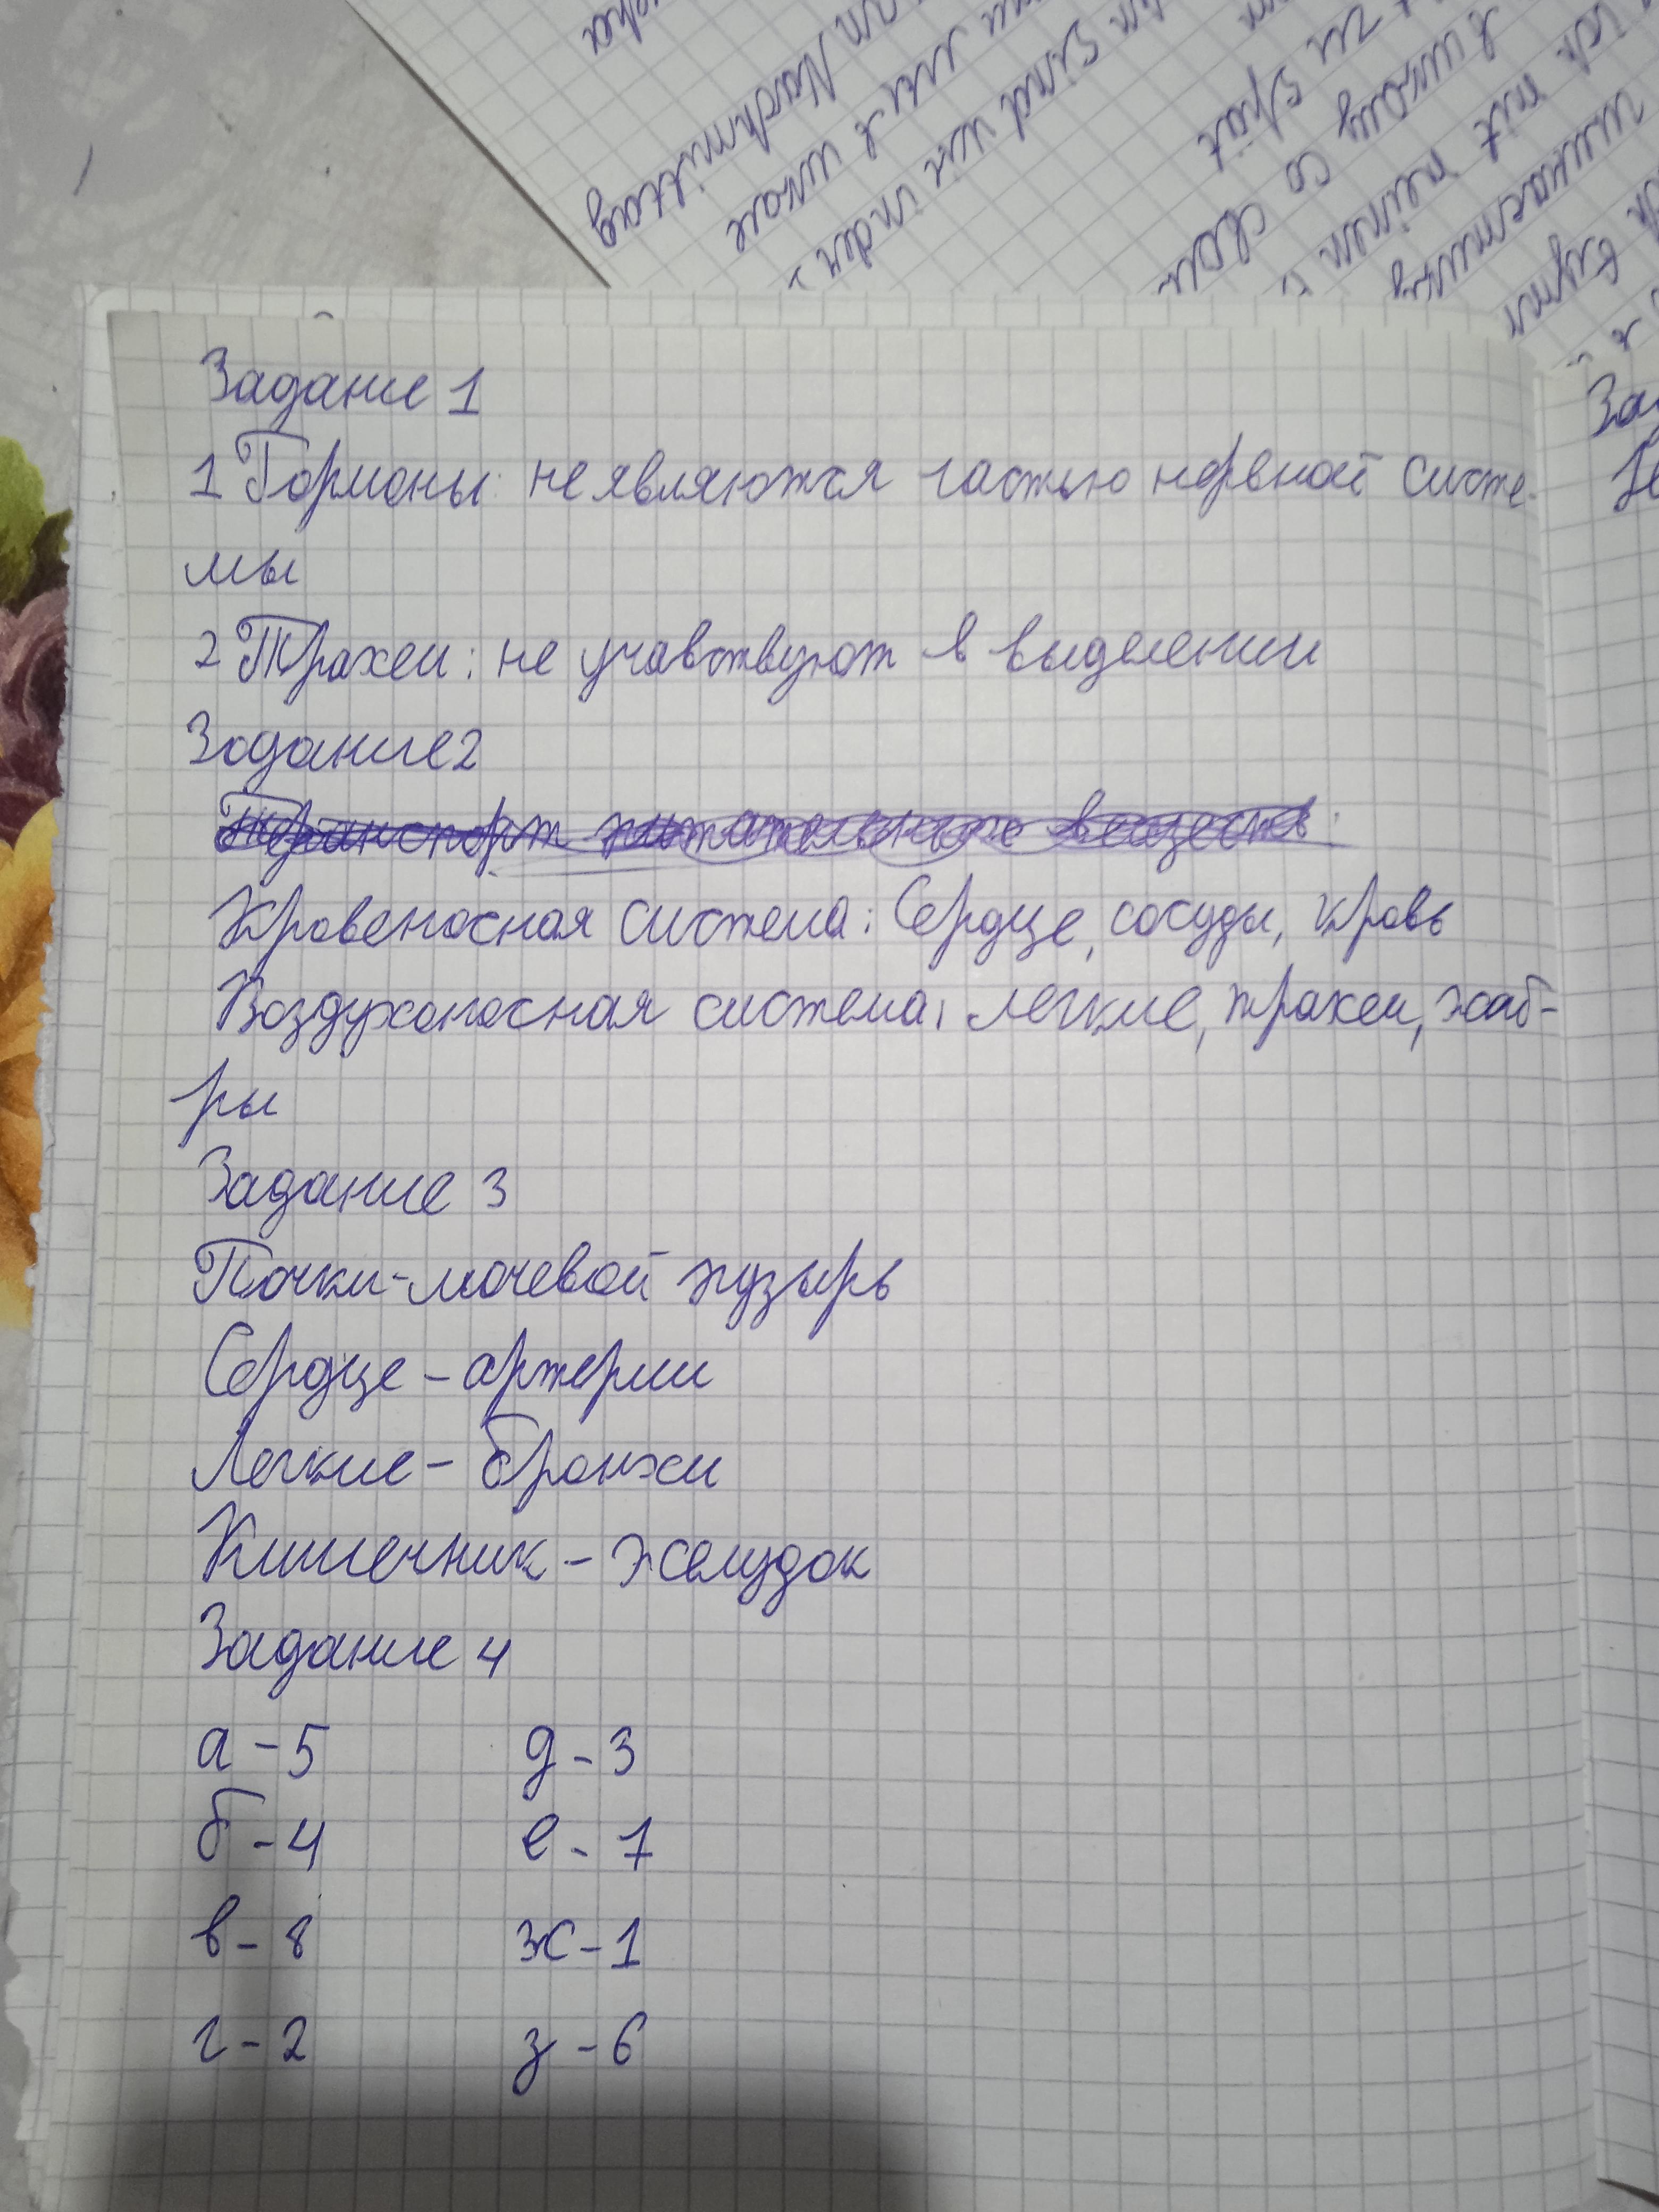 Nachmittag
sind wir
inden
в школе
spät
в школу со
свои
mit meinen
ich
Задание 1
1 Гормоны: не являются частью нервной систе-
мы
2 Трахеи: не учавствуют в выделении
Задание 2
Транспорт питательных веществ
Кровеносная система: Сердце, сосуды, кровь
Воздухоносная система: легкие, трахеи, жаб-
ры
Задание 3
Почки-мочевой пузырь
Сердце - артерии
Легкие - бронхи
Кишечник - желудок
Задание 4
а - 5 д - 3
б - 4 е - 7
в - 8 ж - 1
г - 2 з - 6